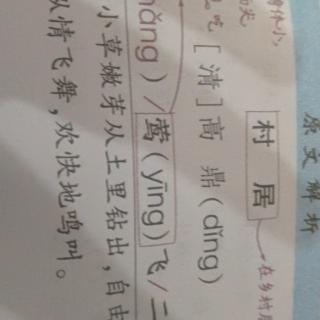 原文解析
村居
在乡村
[清]高鼎(dǐng)
ǎng)/莺(yīng)飞/二
小草嫩芽从土里钻出,自由
情飞舞,欢快地鸣叫。